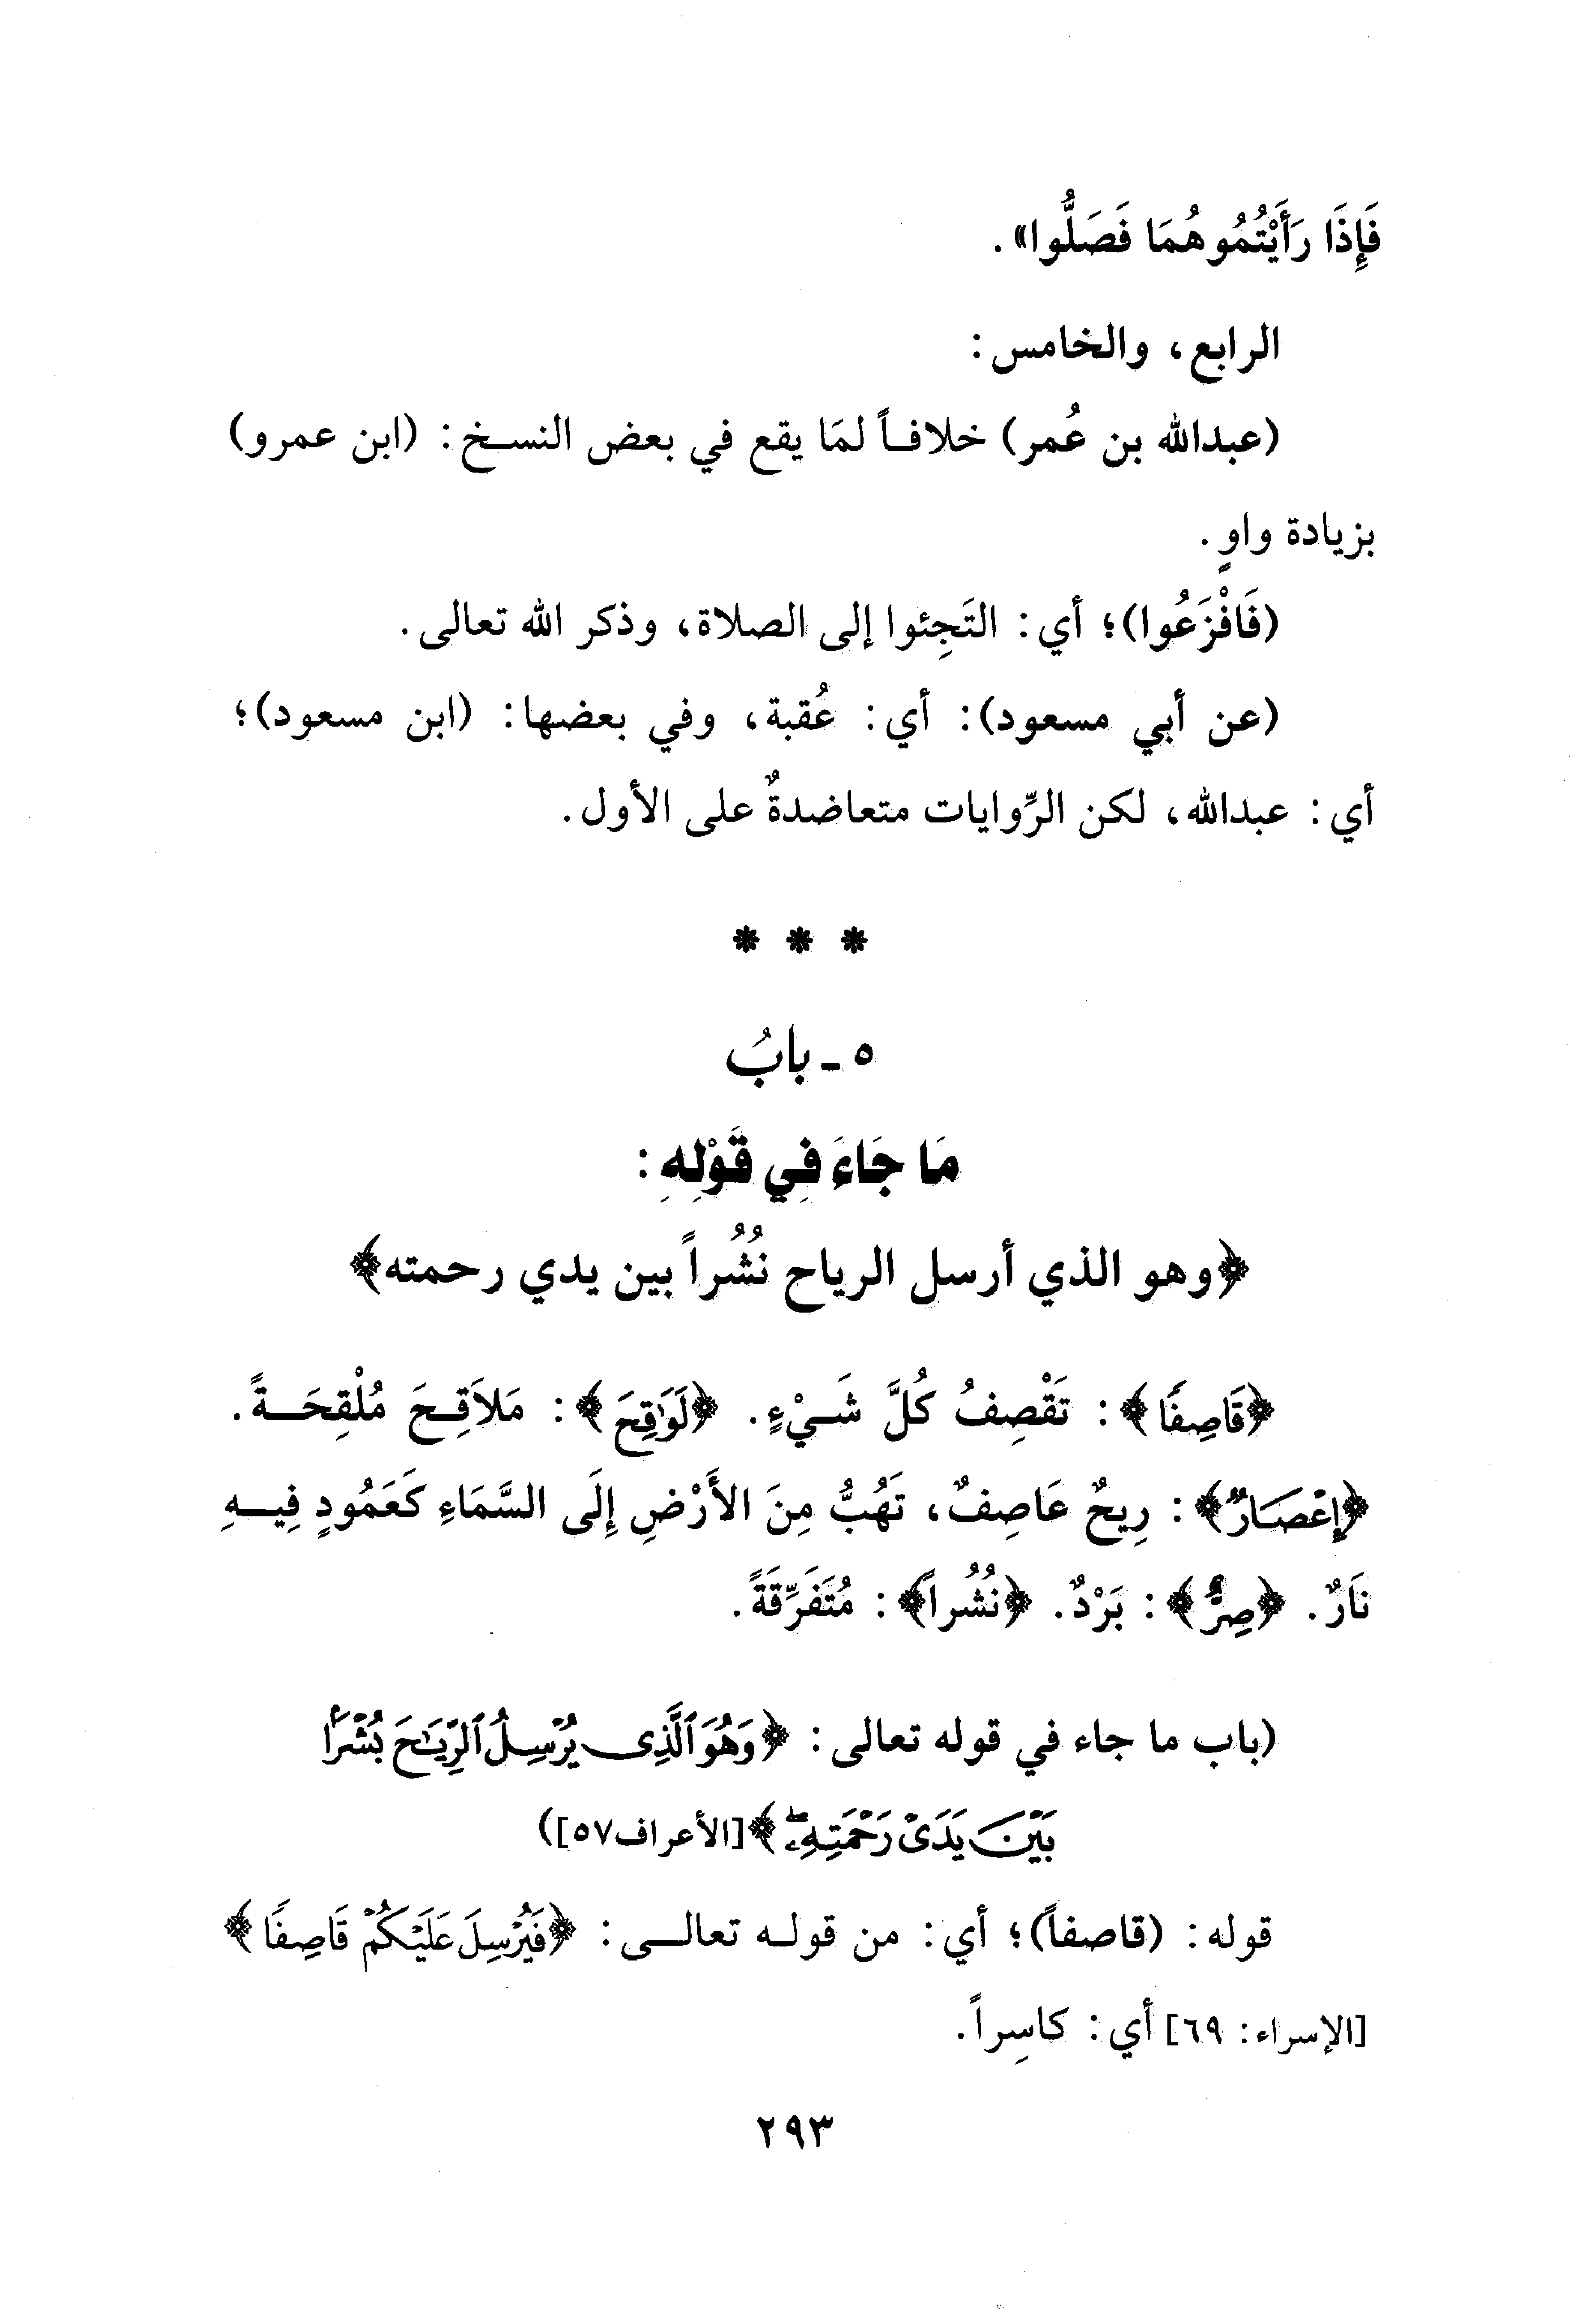 فَإِذَا رَأَيْتُمُوهُمَا فَصَلُّوا».
الرابع، والخامس:
(عبدالله بن عُمر) خلافاً لمَا يقع في بعض النسخ: (ابن عمرو)
بزيادة واوٍ.
(فَافْزَعُوا)؛ أي: التَجِئوا إلى الصلاة، وذكر الله تعالى.
(عن أبي مسعود): أي: عُقبة، وفي بعضها: (ابن مسعود)؛
أي: عبدالله، لكن الرِّوايات متعاضدةٌ على الأول.
* * *
٥ ـ بابُ
مَا جَاءَ فِي قَوْلِهِ:
﴿وهو الذي أرسل الرياح نُشُراً بين يدي رحمته﴾
﴿قَاصِفًا﴾: تَقْصِفُ كُلَّ شَيْءٍ. ﴿لَوَٰقِحَ﴾: مَلاَقِحَ مُلْقِحَةً.
﴿إِعْصَارٌ﴾: رِيحٌ عَاصِفٌ، تَهُبُّ مِنَ الأَرْضِ إِلَى السَّمَاءِ كَعَمُودٍ فِيهِ
نَارٌ. ﴿صِرٌّ﴾: بَرْدٌ. ﴿نُشُراً﴾: مُتَفَرِّقَةً.
(باب ما جاء في قوله تعالى: ﴿وَهُوَ ٱلَّذِى يُرْسِلُ ٱلرِّيَٰحَ بُشْرًۢا
بَيْنَ يَدَىْ رَحْمَتِهِۦ﴾[الأعراف٥٧])
قوله: (قاصفاً)؛ أي: من قوله تعالى: ﴿فَيُرْسِلَ عَلَيْكُمْ قَاصِفًا﴾
[الإسراء: ٦٩] أي: كاسِراً.
٢٩٣